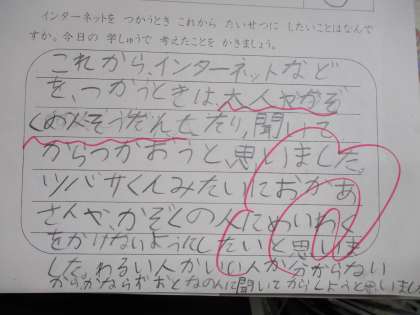 インターネットを つかうとき これから たいせつに したいことはなんで
すか。今日の 学しゅうで 考えたことを かきましょう。
これから、インターネットなど
を、つかうときは大人やかぞ
くの人とそうだん。したり、聞いて
からつかおうと、思いました。
ツバサくんみたいにおかあ
さんや、かぞくの人にめいわく
をかけないようにしたいと思いま
した。わるい人かいい人か分からない
から、かならずおとなの人に聞いてからしようと思いました